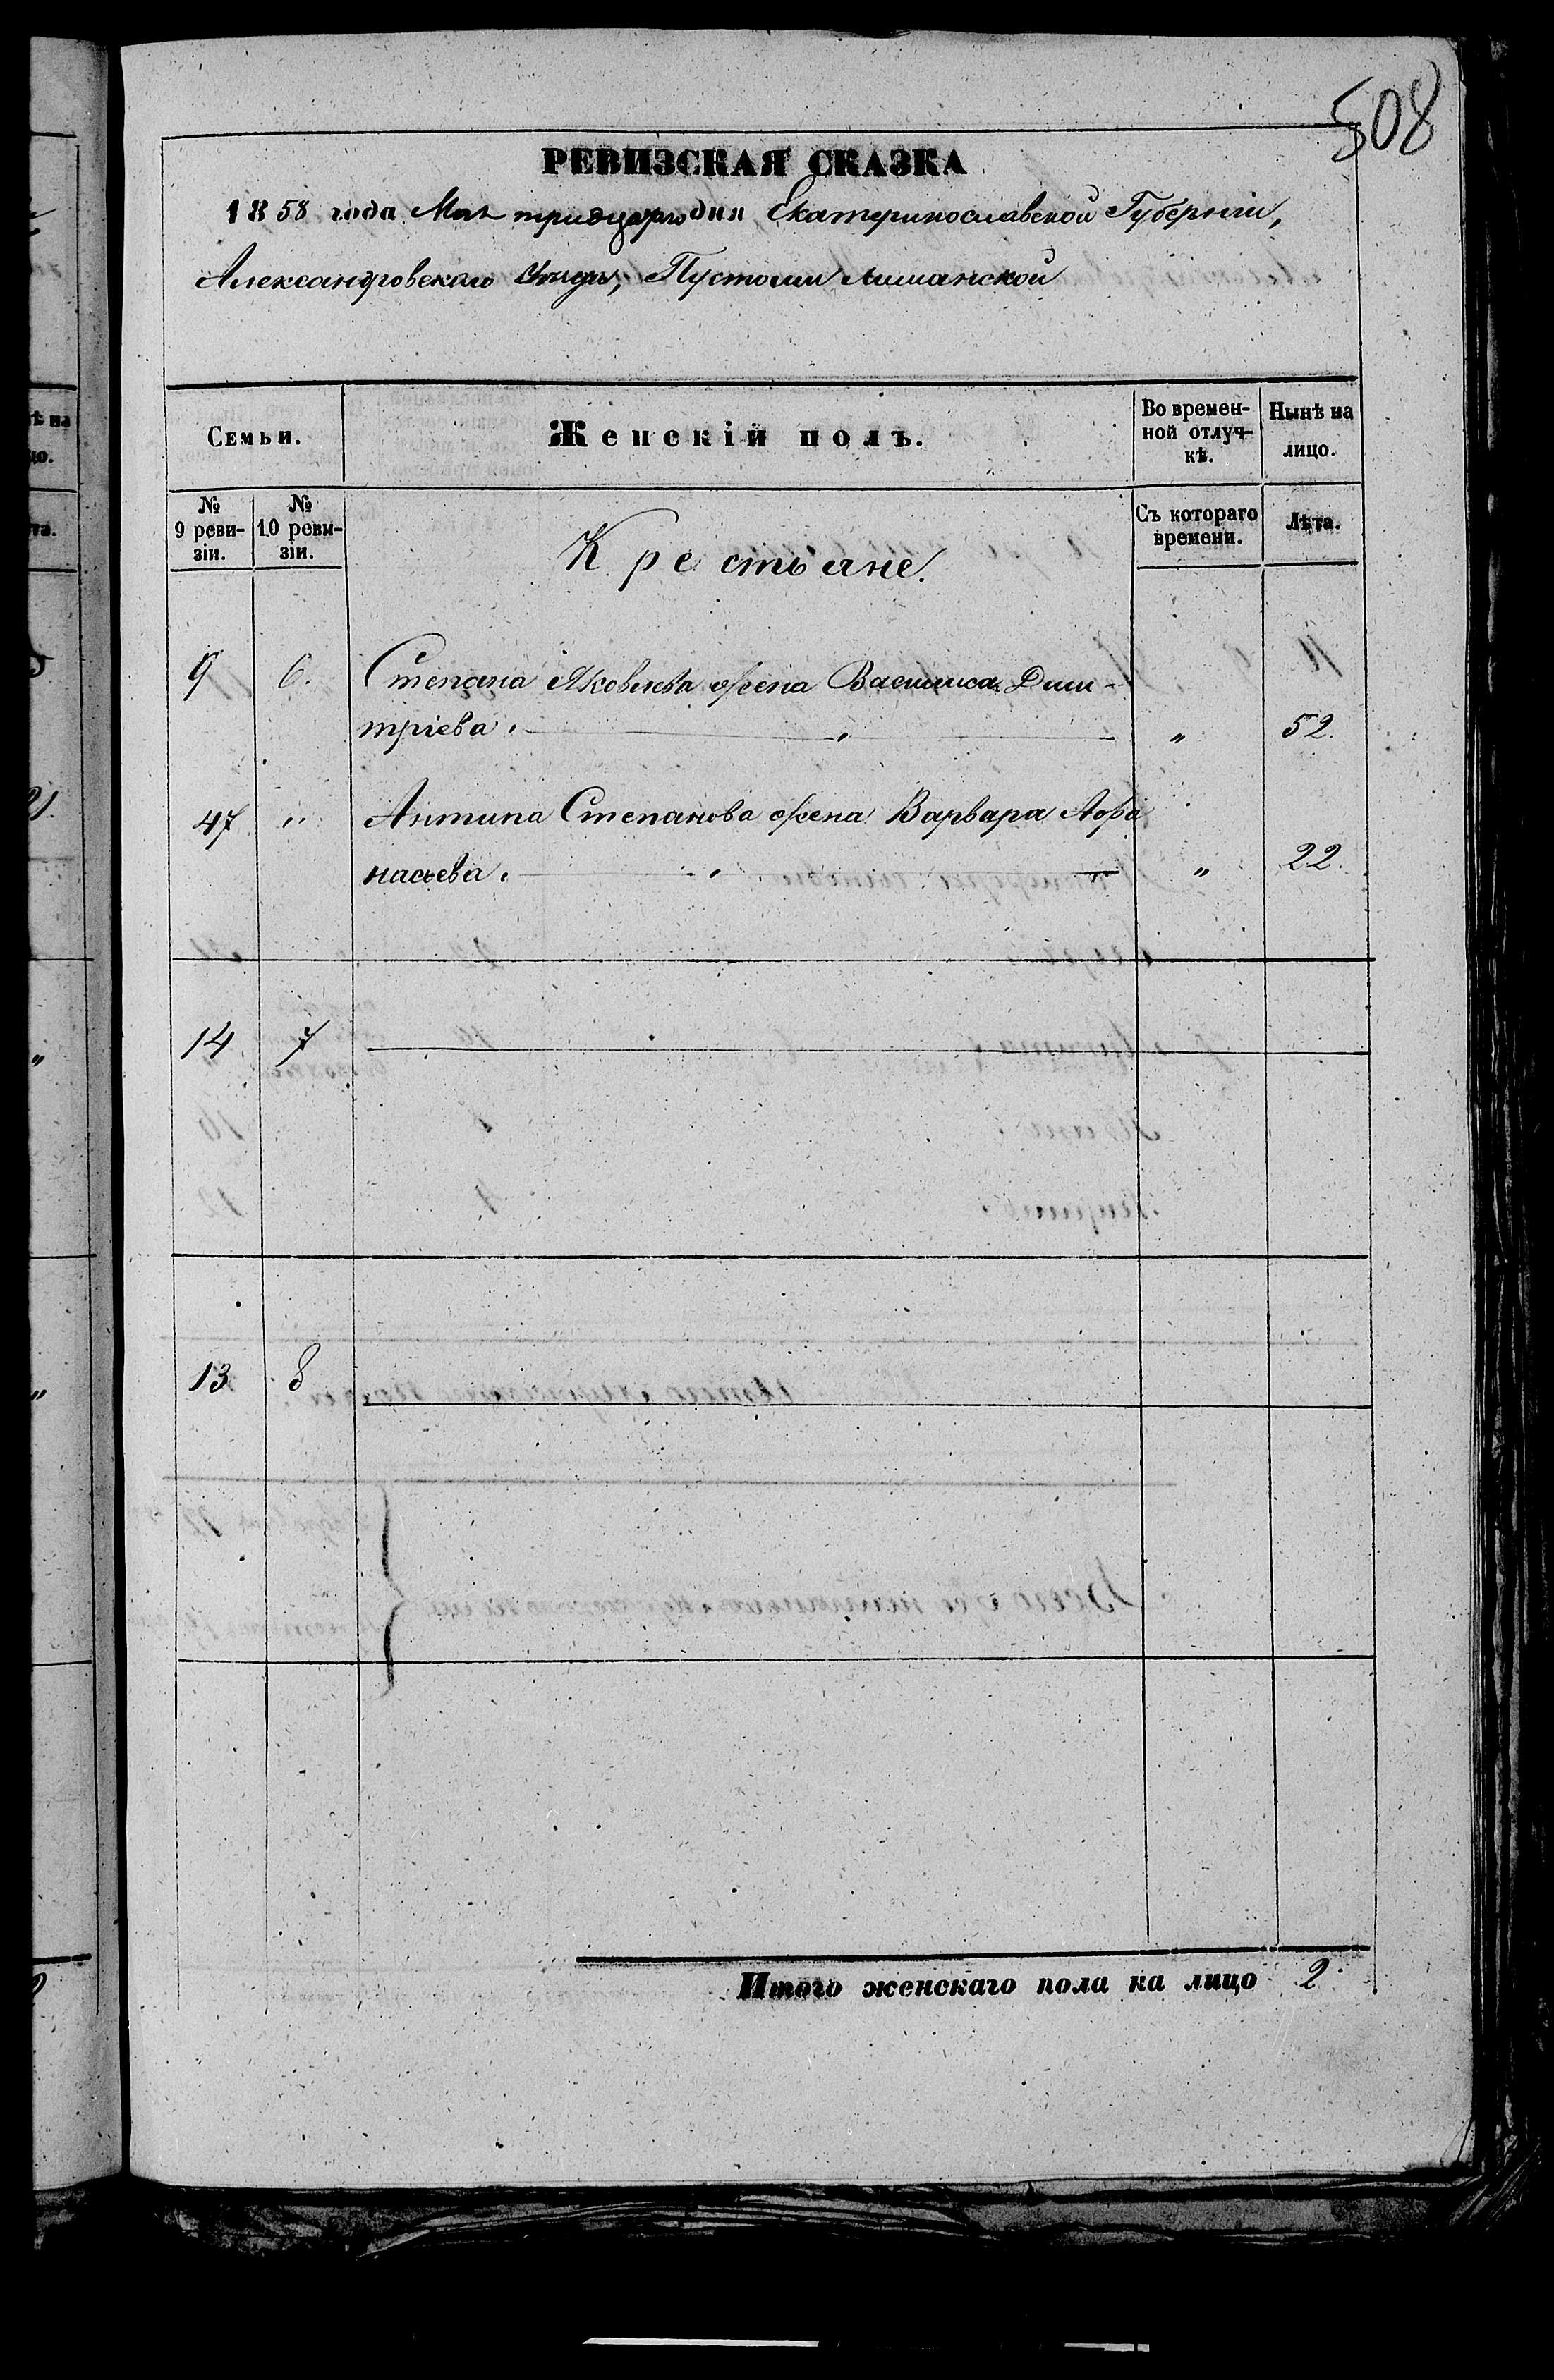 508
РЕВИЗСКАЯ СКАЗКА
1858 года Мая тридцатаго дня Екатеринославской Губерніи,
Александровского Уѣзда, Пустоши Лиманской
Семьи.
Женскій полъ.
Во времен-
ной отлуч-
кѣ.
Нынѣ на
лицо.
№
9 реви-
зіи.
№
10 реви-
зіи.
Крестьяне.
Съ котораго
времени.
Лѣта.
9 6. Степана Яковлева жена Василиса Дми-
тріева. „ „ 52.
47 „ Антипа Степанова жена Варвара Афа
насьева. „ „ 22.
14 7
13 8
Итого женскаго пола на лицо 2.